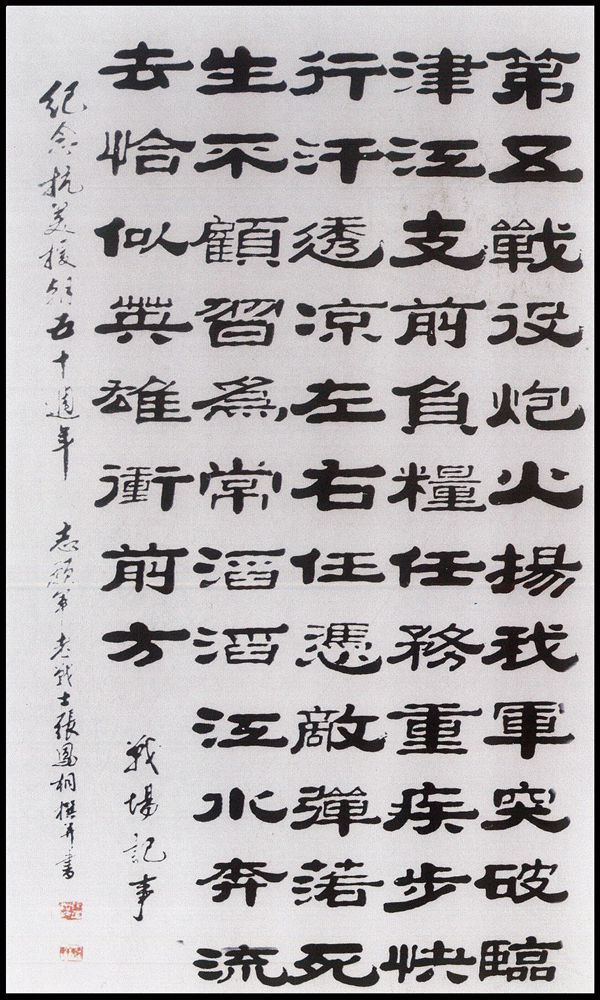 第五戰役炮火揚我軍突破臨
津江支前負糧任務重疾步快
行汗透凉左右任憑敵彈落死
生不顧習爲常滔滔江水奔流
去恰似英雄衝前方
戰場記事
紀念抗美援朝五十週年 志願軍老戰士張鳳桐撰并書